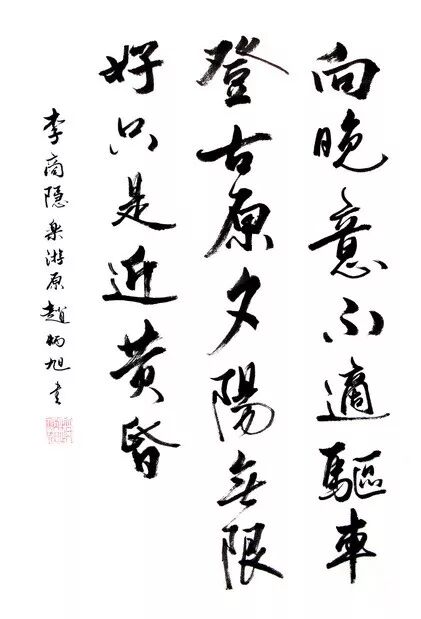 向晚意不適驅車
登古原夕陽無限
好只是近黃昏
李商隱樂游原趙炳旭書